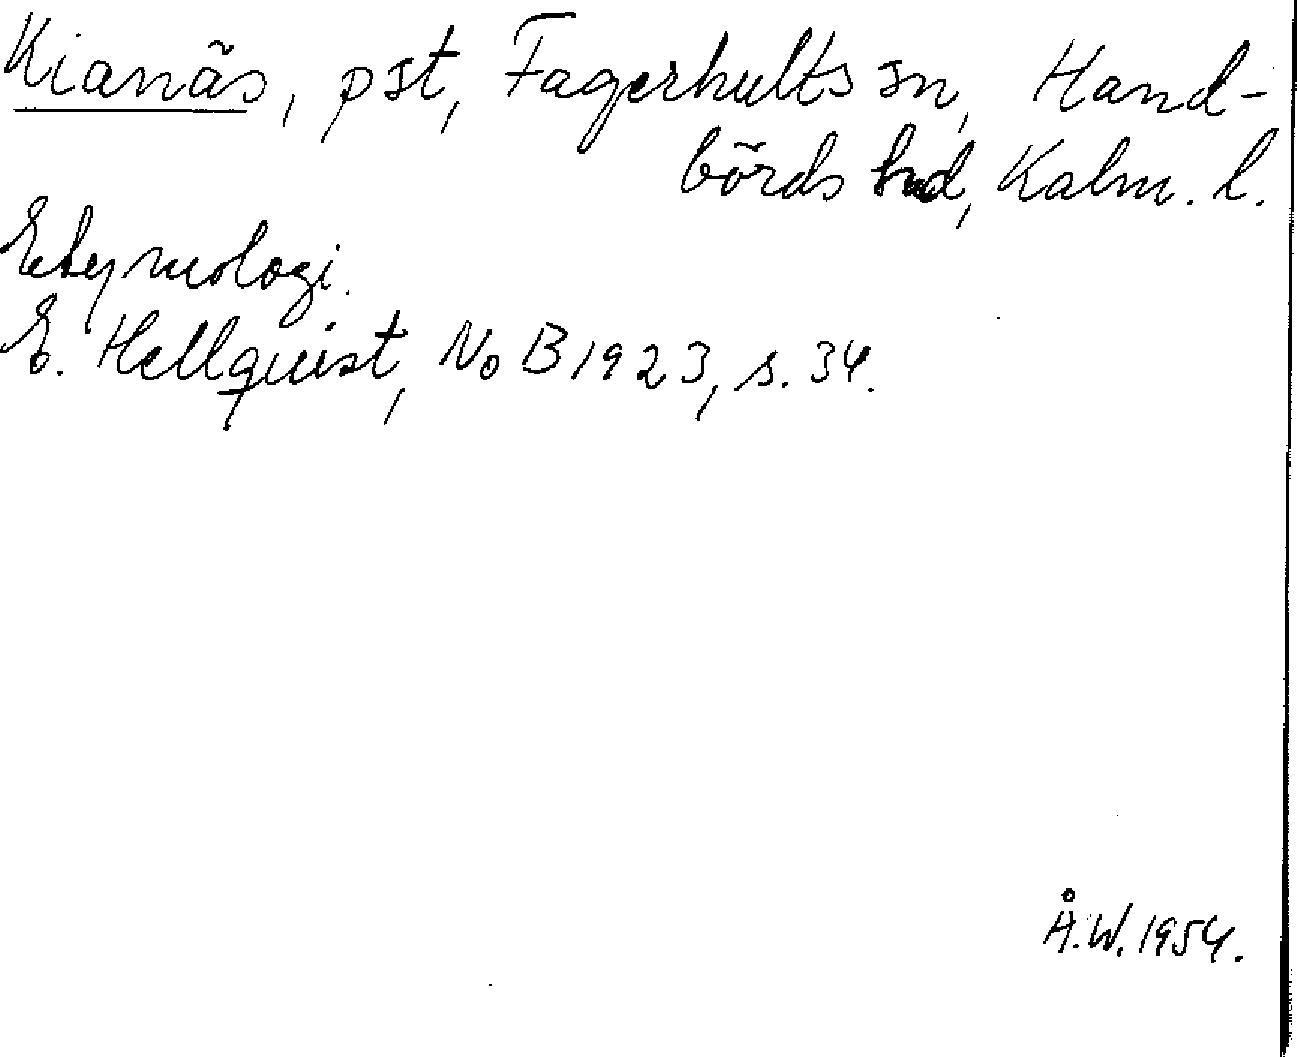 Kianäs, pst, Fagerhults sn, Hand-
börds hd, Kalm. l.
Etymologi.
E. Hellquist, NoB 1923, s. 34.
Å.W. 1954.